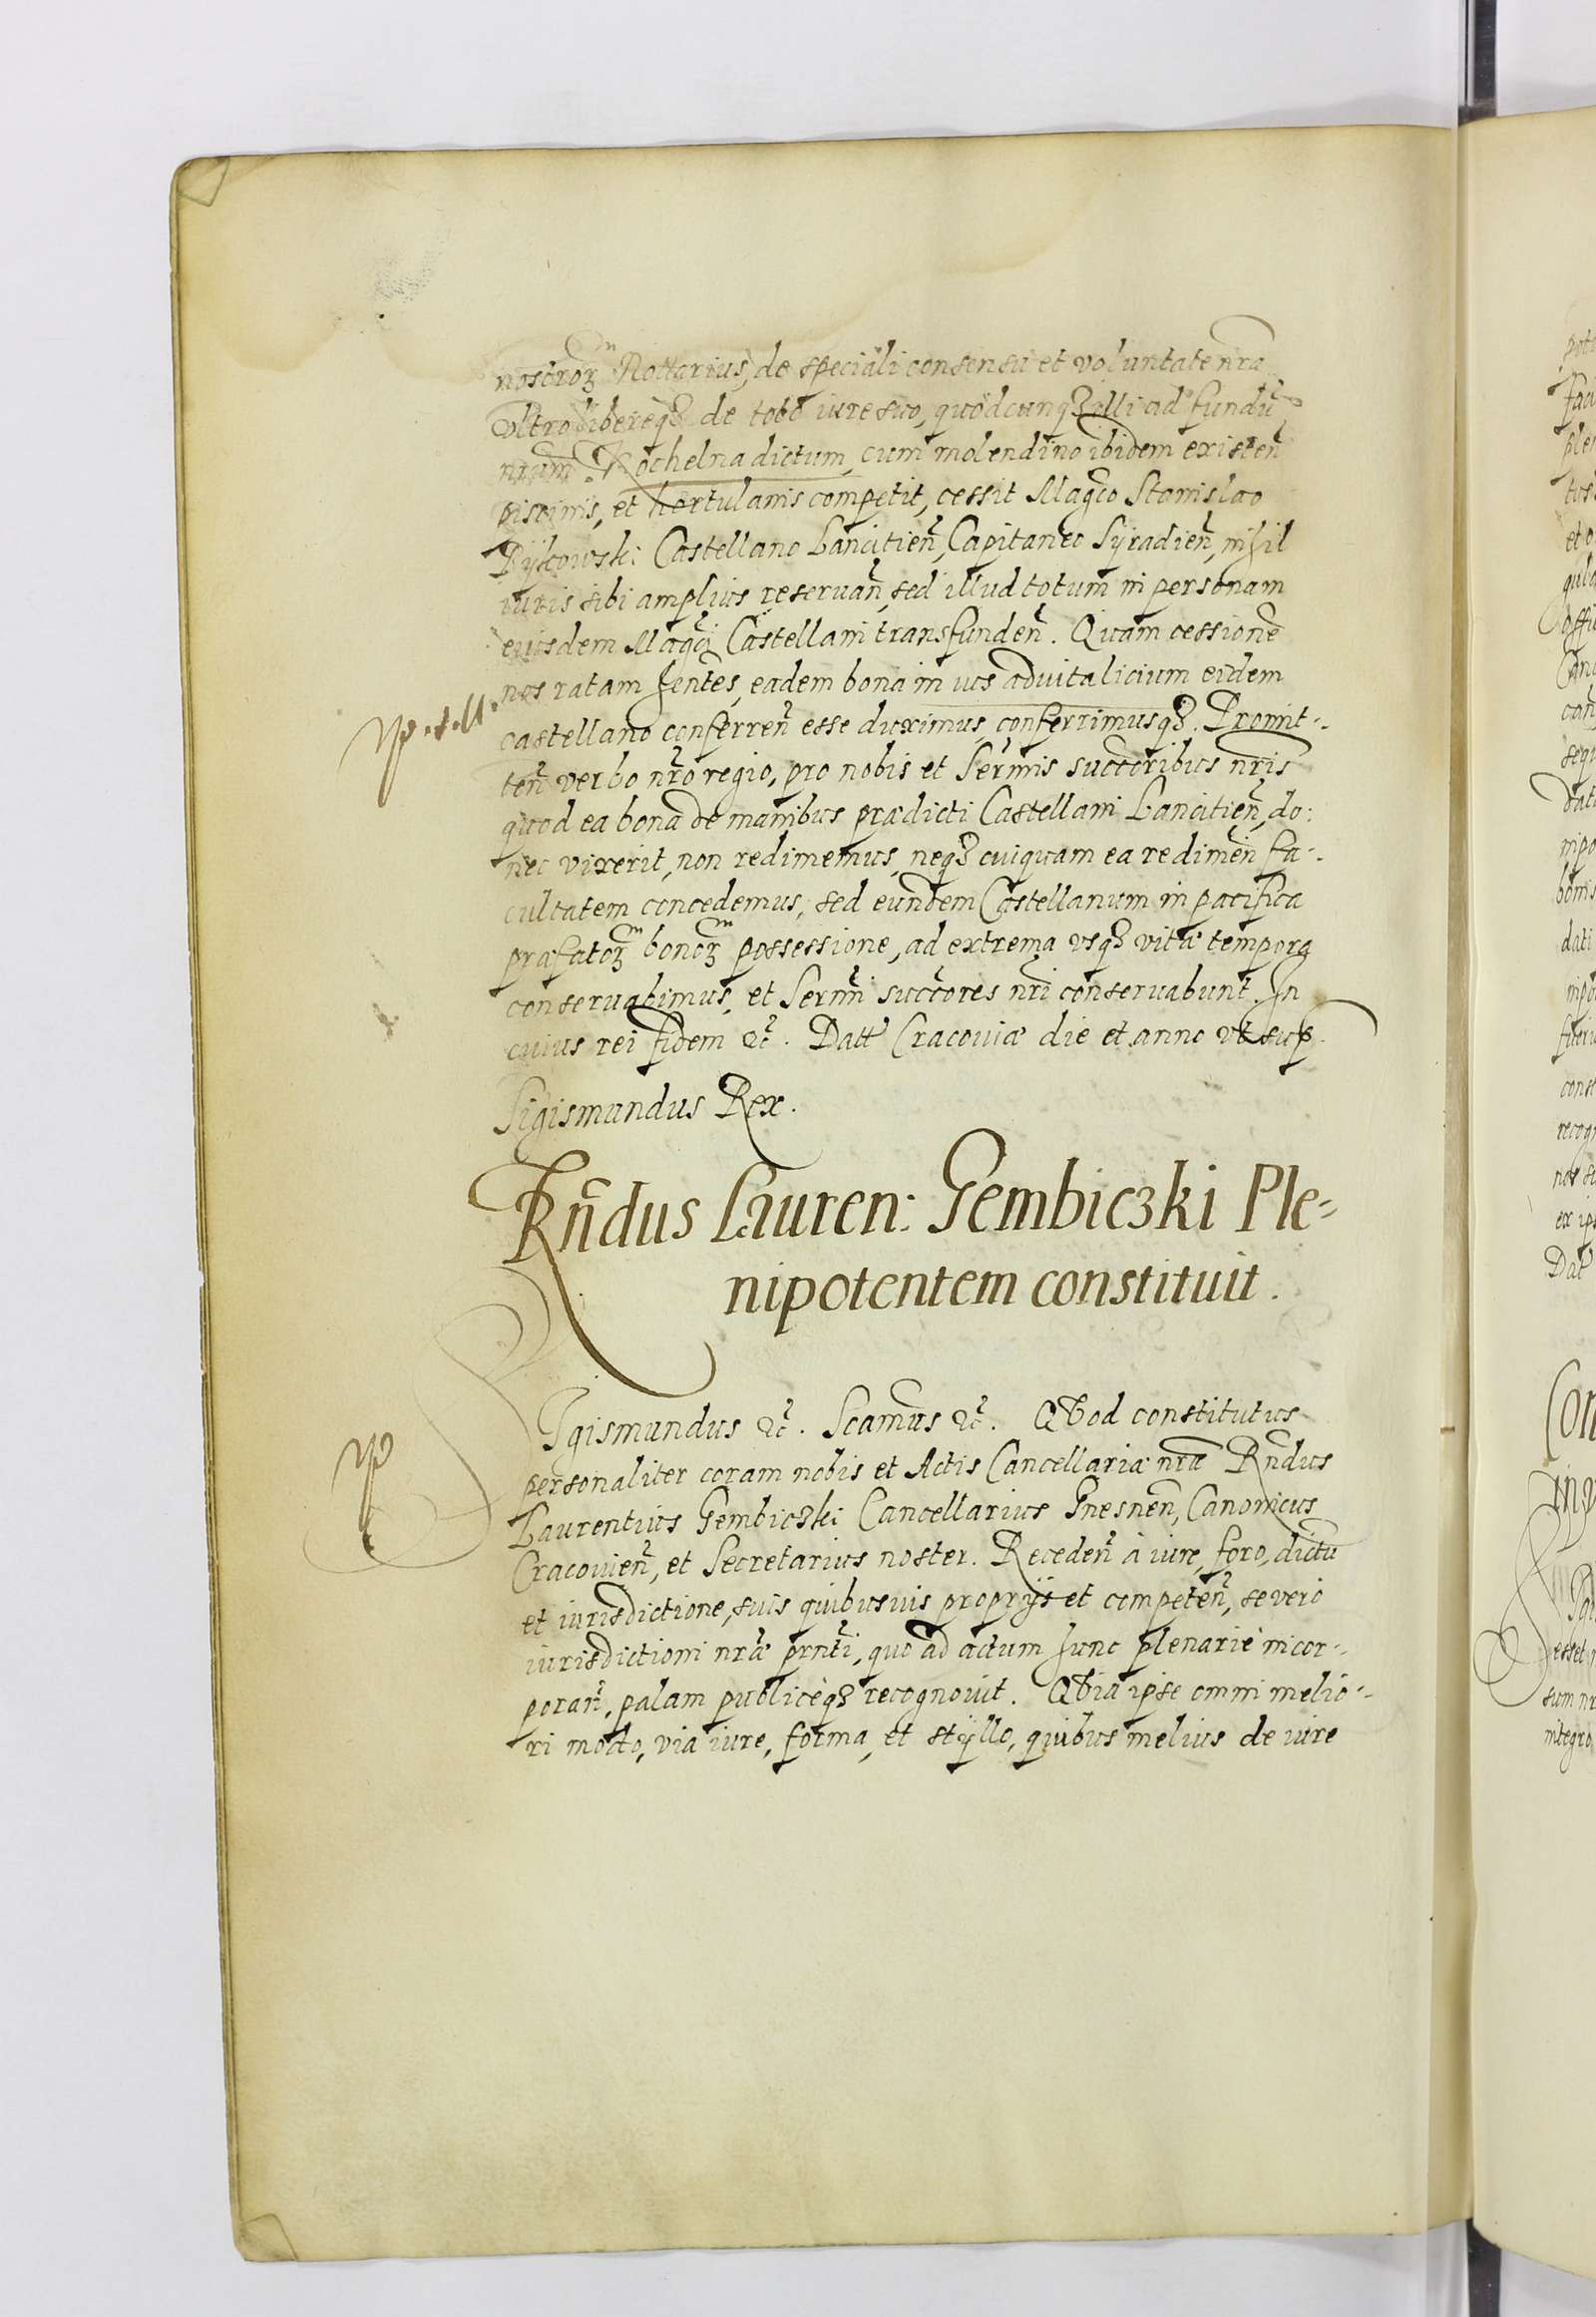 nostrorꝫ Nottarius, de speciali consensu et voluntate nr̄a
vltro libereqꝫ de toto iure suo, quodcunqꝫ illi ad fundū
nr̄um Kochelna dictum, cum molendino ibidem existen̄
piscinis, et hortulanis competit, cessit Magco Stanislao
Bykowski Castellano Lancitien̄, Capitaneo Syradien̄, nihil
iuris sibi amplius reseruan̄, sed illud totum in personam
eiusdem Magci Castellani transfunden̄. Quam cessionē
nos ratam hentes, eadem bona in ius aduitalicium eidem
castellano conferren̄ esse duximus, conferrimusqꝫ. Promit-
ten̄ verbo nr̄o regio, pro nobis et Sermis succoribus nr̄is
quod ea bona de manibus prædicti Castellani Lancitien̄, do:
nec vixerit, non redimemus, neqꝫ cuiquam ea redimen̄ fa-
cultatem concedemus, sed eundem Castellanum in pacifica
præfatorꝫ bonorꝫ possessione, ad extrema vsqꝫ vitæ tempora
conseruabimus, et Sermi succores nr̄i conseruabunt. In
cuius rei fidem ꝛc. Datt Cracouiæ die et anno vt sup.
Sigismundus Rex.
Rn̄dus Lauren: Gembiczki Ple-
nipotentem constituit.
Sigismundus ꝛc. Scamus ꝛc. QVod constitutus
personaliter coram nobis et Actis Cancellariæ nr̄æ Rn̄dus
Laurentius Gembiczki Cancellarius Gnesnen̄, Canonicus
Cracouien̄, et Secretarius noster. Receden̄ à iure, foro, dictū
et iurisdictione, suis quibusuis proprijs et competen̄, se vero
iurisdictioni nr̄æ prnti, quo ad actum hunc plenarie incor-
poran̄, palam publiceqꝫ recognouit. QVia ipse omni melio-
ri modo, via iure, forma, et styllo, quibus melius de iure